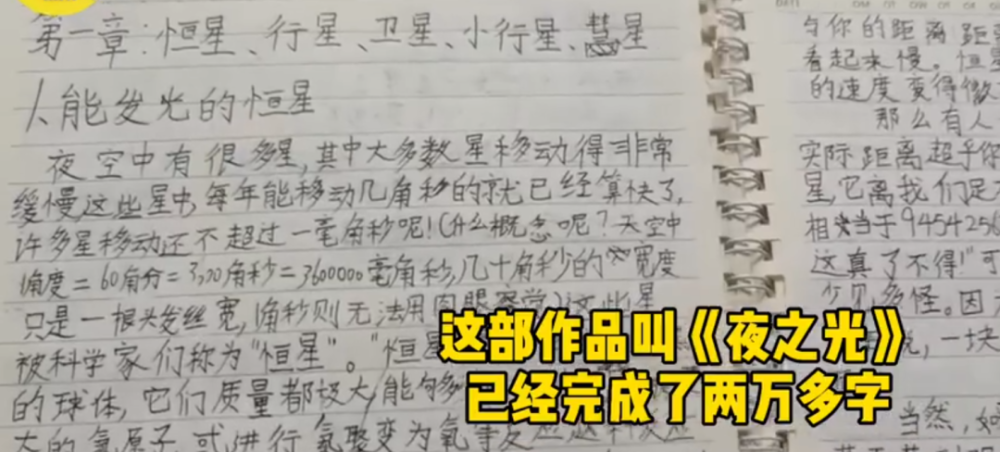 第一章:恒星、行星、卫星、小行星、慧星
1、能发光的恒星
夜空中有很多星,其中大多数星移动得非常
缓慢,这些星中,每年能移动几角秒的就已经算快了,
许多星移动还不超过一毫角秒呢!(什么概念呢?天空中
1角度=60角分=3600角秒=3600000毫角秒,几十角秒的宽度
只是一根头发丝宽,1角秒则无法用肉眼察觉)这些星
被科学家们称为“恒星”。“恒星
的球体,它们质量都极大,能够
大的氢原子
与你的距离
看起来慢。恒星
的速度变得微
那么有人
实际距离超乎你
星,它离我们足
相当于9454256
这真了不得!”可
少见多怪。因
说,一块
当然,如
这部作品叫《夜之光》
已经完成了两万多字